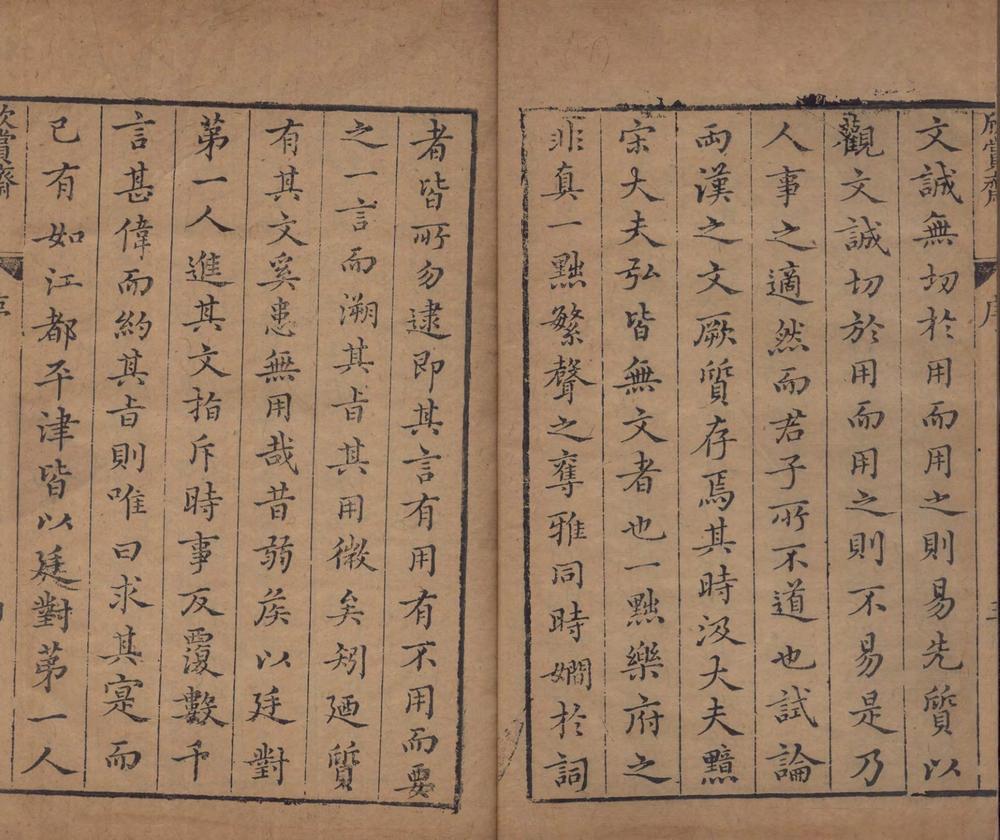 欣賞齋 序
文誠無切於用而用之則易先質以
觀文誠切於用而用之則不易是乃
人事之適然而君子所不道也試論
兩漢之文厥質存焉其時汲大夫黯
宋大夫弘皆無文者也一黜樂府之
非真一黜繁聲之奪雅同時嫺於詞
者皆所勿逮即其言有用有不用而要
之一言而溯其旨其用微矣矧廼質
有其文奚患無用哉昔弱侯以廷對
第一人進其文指斥時事反覆數千
言甚偉而約其旨則唯曰求其寔而
已有如江都平津皆以廷對第一人
欣賞齋 序